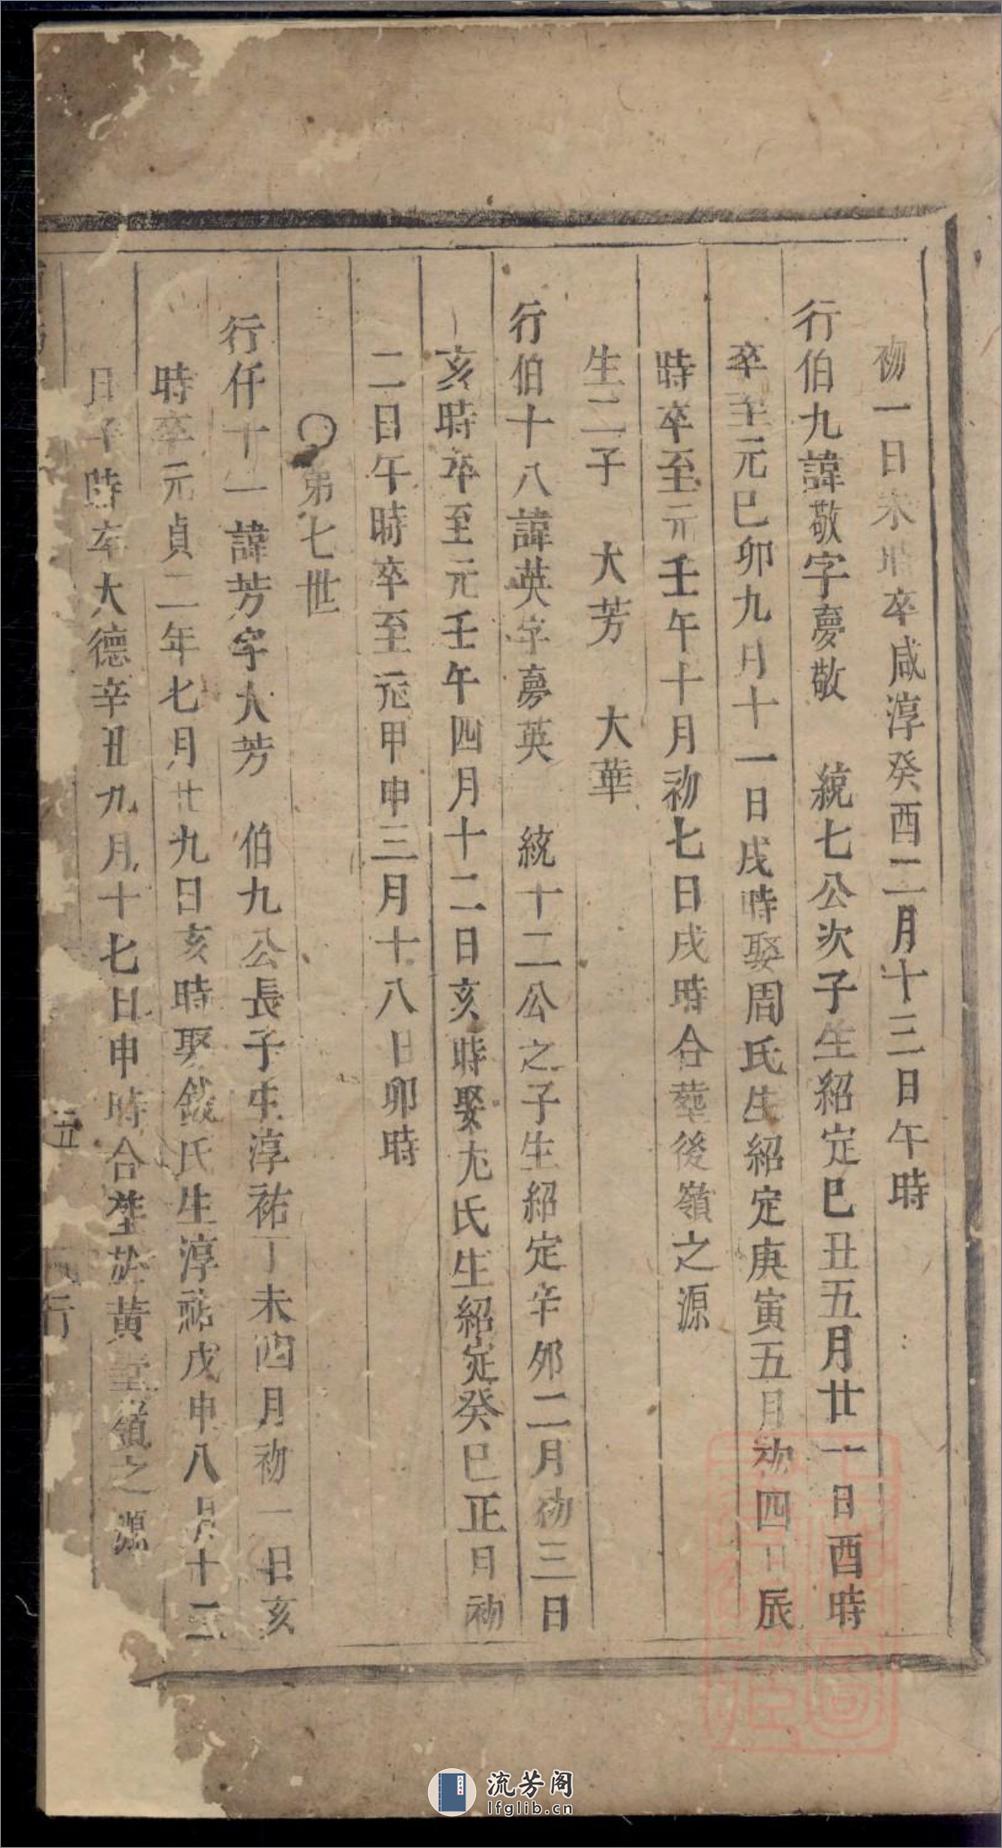 初一日未時卒咸淳癸酉二月十三日午時
行伯九諱敬字夢敬　統七公次子生紹定己丑五月廿一日酉時
卒至元己卯九月十一日戌時娶周氏生紹定庚寅五月初四日辰
時卒至元壬午十月初七日戌時合塟後嶺之源
生二子　大芳　大華
行伯十八諱英字夢英　統十二公之子生紹定辛卯二月初三日
亥時卒至元壬午四月十二日亥時娶尤氏生紹定癸巳正月初
二日午時卒至元甲申三月十八日卯時
〇弟七世
行仟十一諱芳字大芳　伯九公長子生淳祐丁未四月初一日亥
時卒元貞二年七月廿九日亥時娶錢氏生淳祐戊申八月十三
日子時卒大德辛丑九月十七日申時合塟於黃堂嶺之源
五
行
流芳阁
lfglib.cn